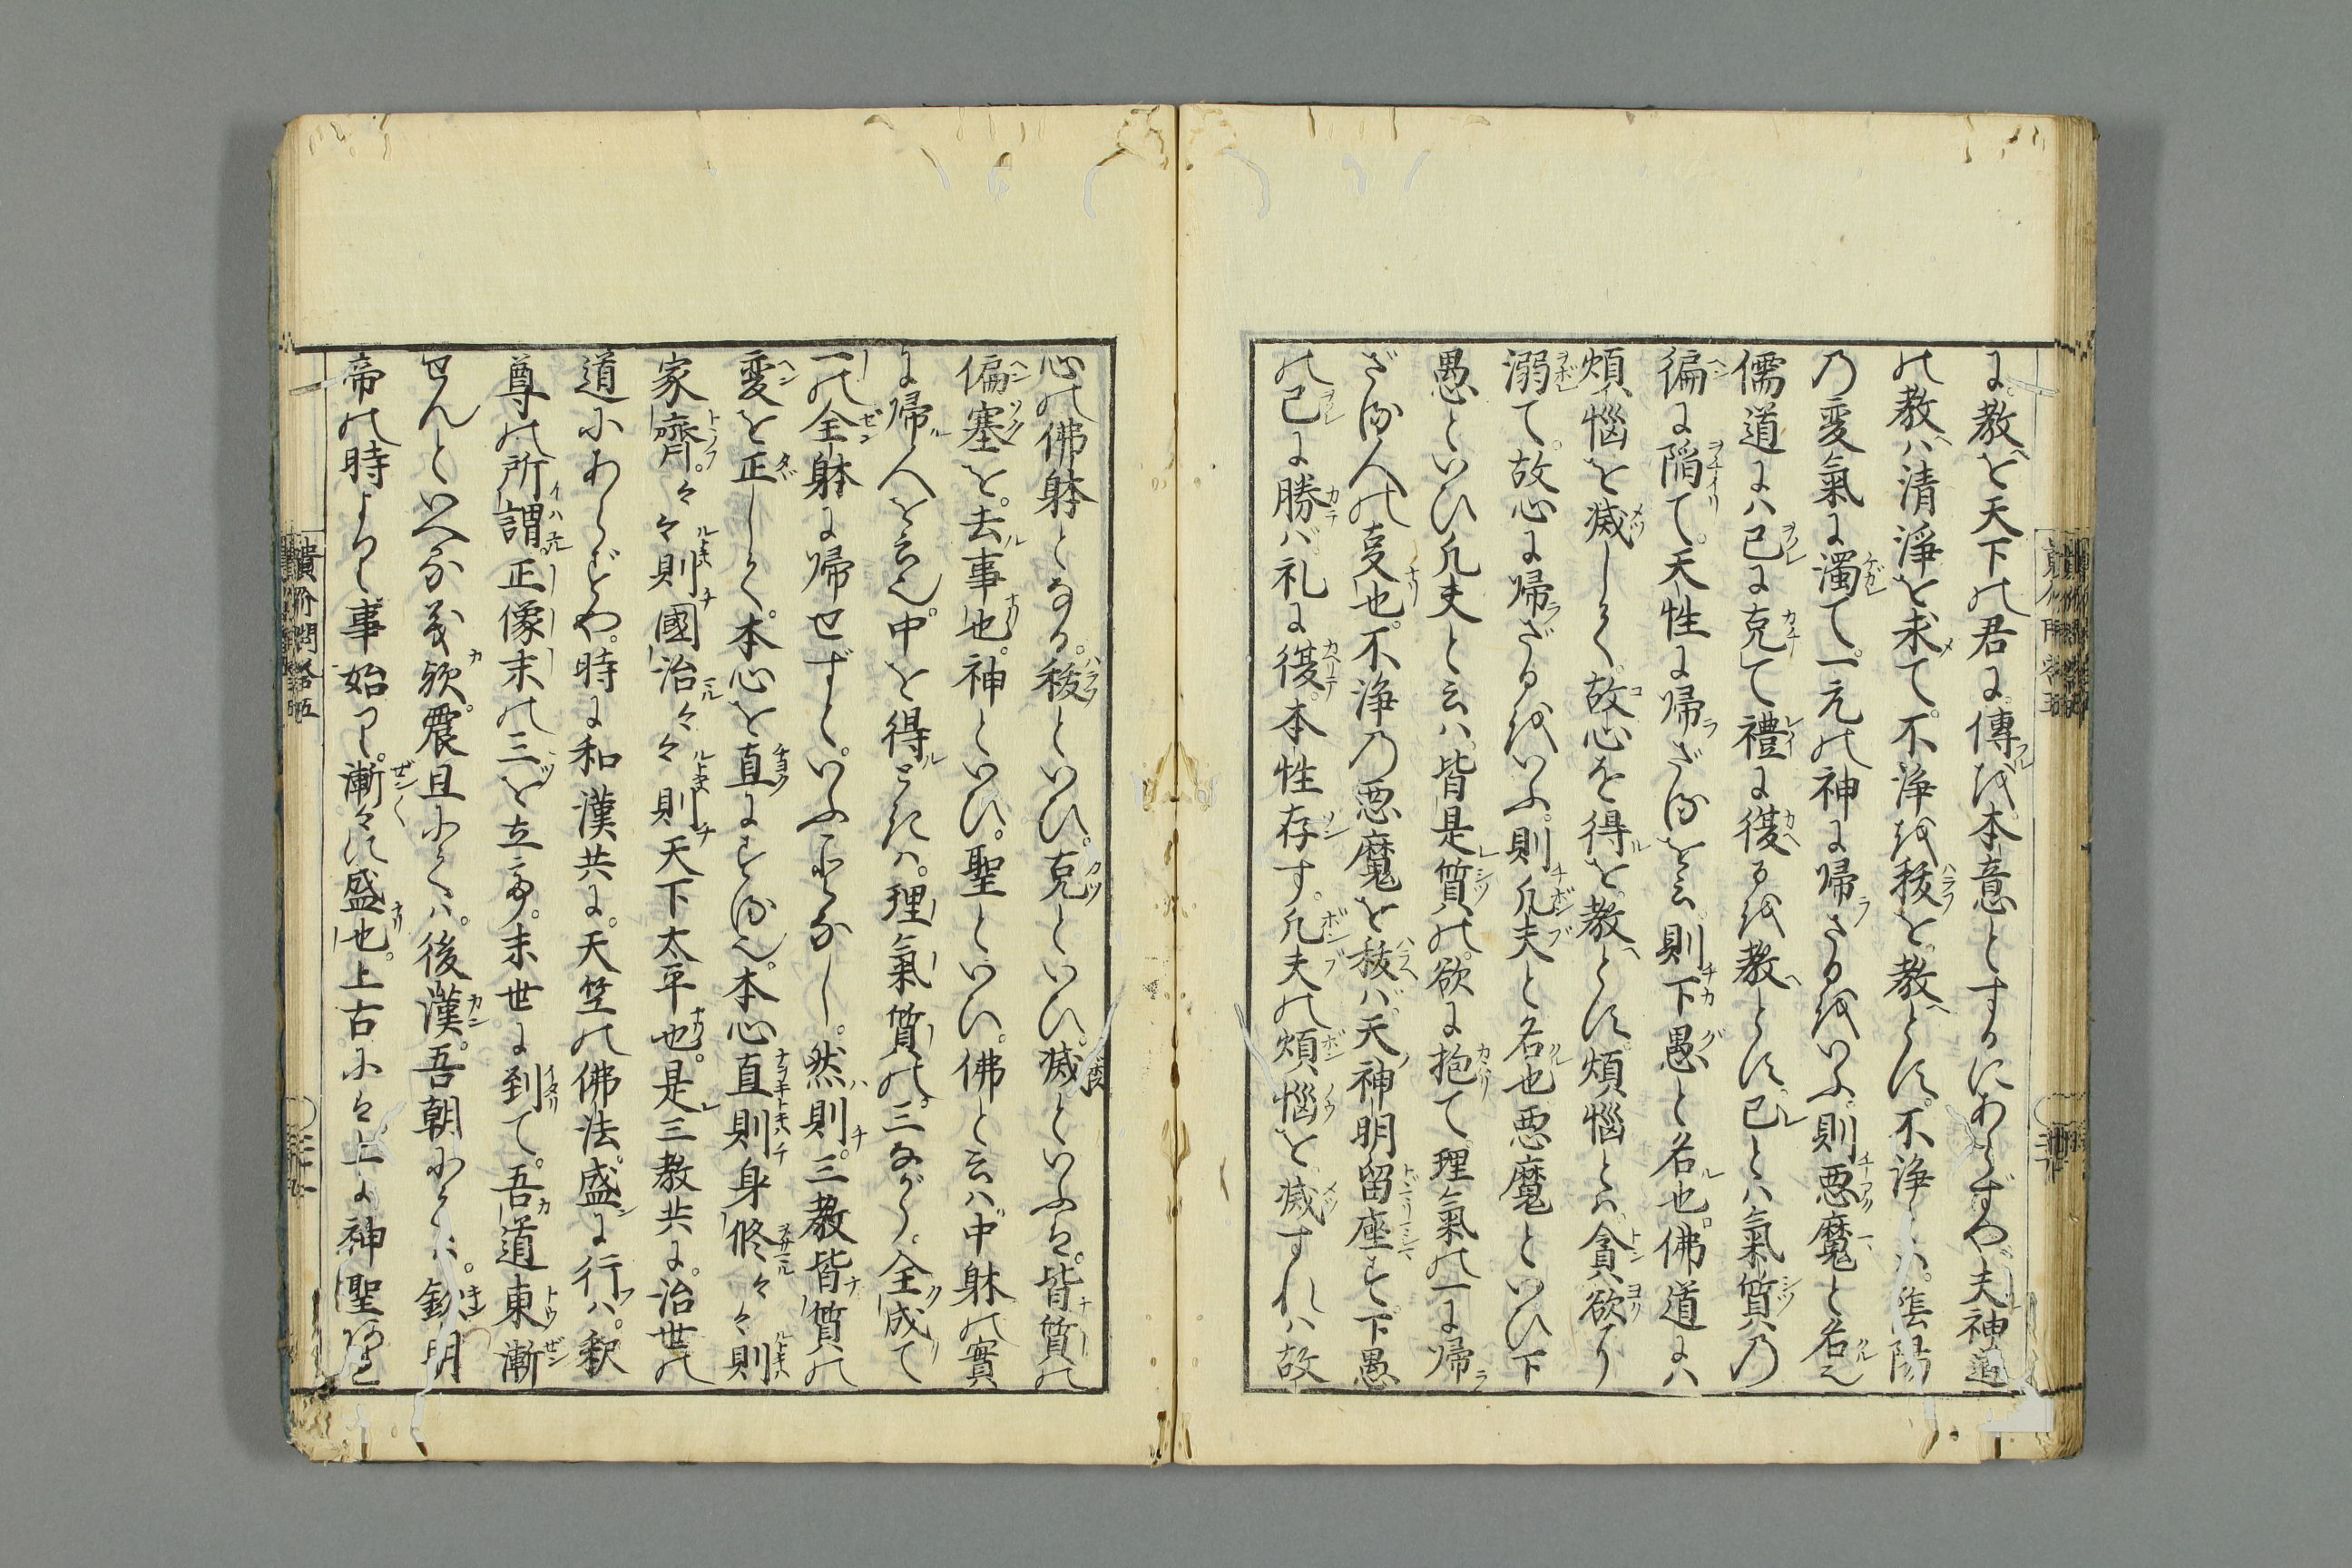 に教を天下の君に傳を本意とするにあらずや夫神道
の教ハ清淨を求て不淨を秡を教とす不淨とハ陰陽
乃変氣に濁て一元の神に帰さるをいふ則悪魔と名之
儒道にハ己に克て禮に復るを教とす己とハ氣質乃
徧に陥て天性に帰ざるを云則下愚と名也佛道にハ
煩惱を滅して故心を得を教とす煩惱とハ貪欲より
溺て故心に帰ざるをいふ則凡夫と名也悪魔といひ下
愚といひ凡夫と云ハ皆是質の欲に抱て理氣の一に帰
ざる人の変也不淨乃悪魔を秡バ天神明留座す下愚
の己に勝バ礼に復本性存す凡夫の煩惱を滅すれハ故
心の佛躰となる秡といひ克といひ滅といふは皆質の
偏塞を去事也神といひ聖といひ佛と云ハ中躰の實
に帰人を云也中を得ときハ理氣質の三ながら全成て
一の全躰に帰せずといふことなし然則三教皆質の
変を正しく本心を直にする也本心直則身修々々則
家齊々々則國治々々則天下太平也是三教共に治世の
道にあらずや時に和漢共に天竺の佛法盛に行ハ釈
尊の所謂正像末の三を立へ末世に到て吾道東漸
せんといへる義歟震旦にてハ後漢吾朝にてハ欽明
帝の時より事始り漸々に盛也上古に上に神聖